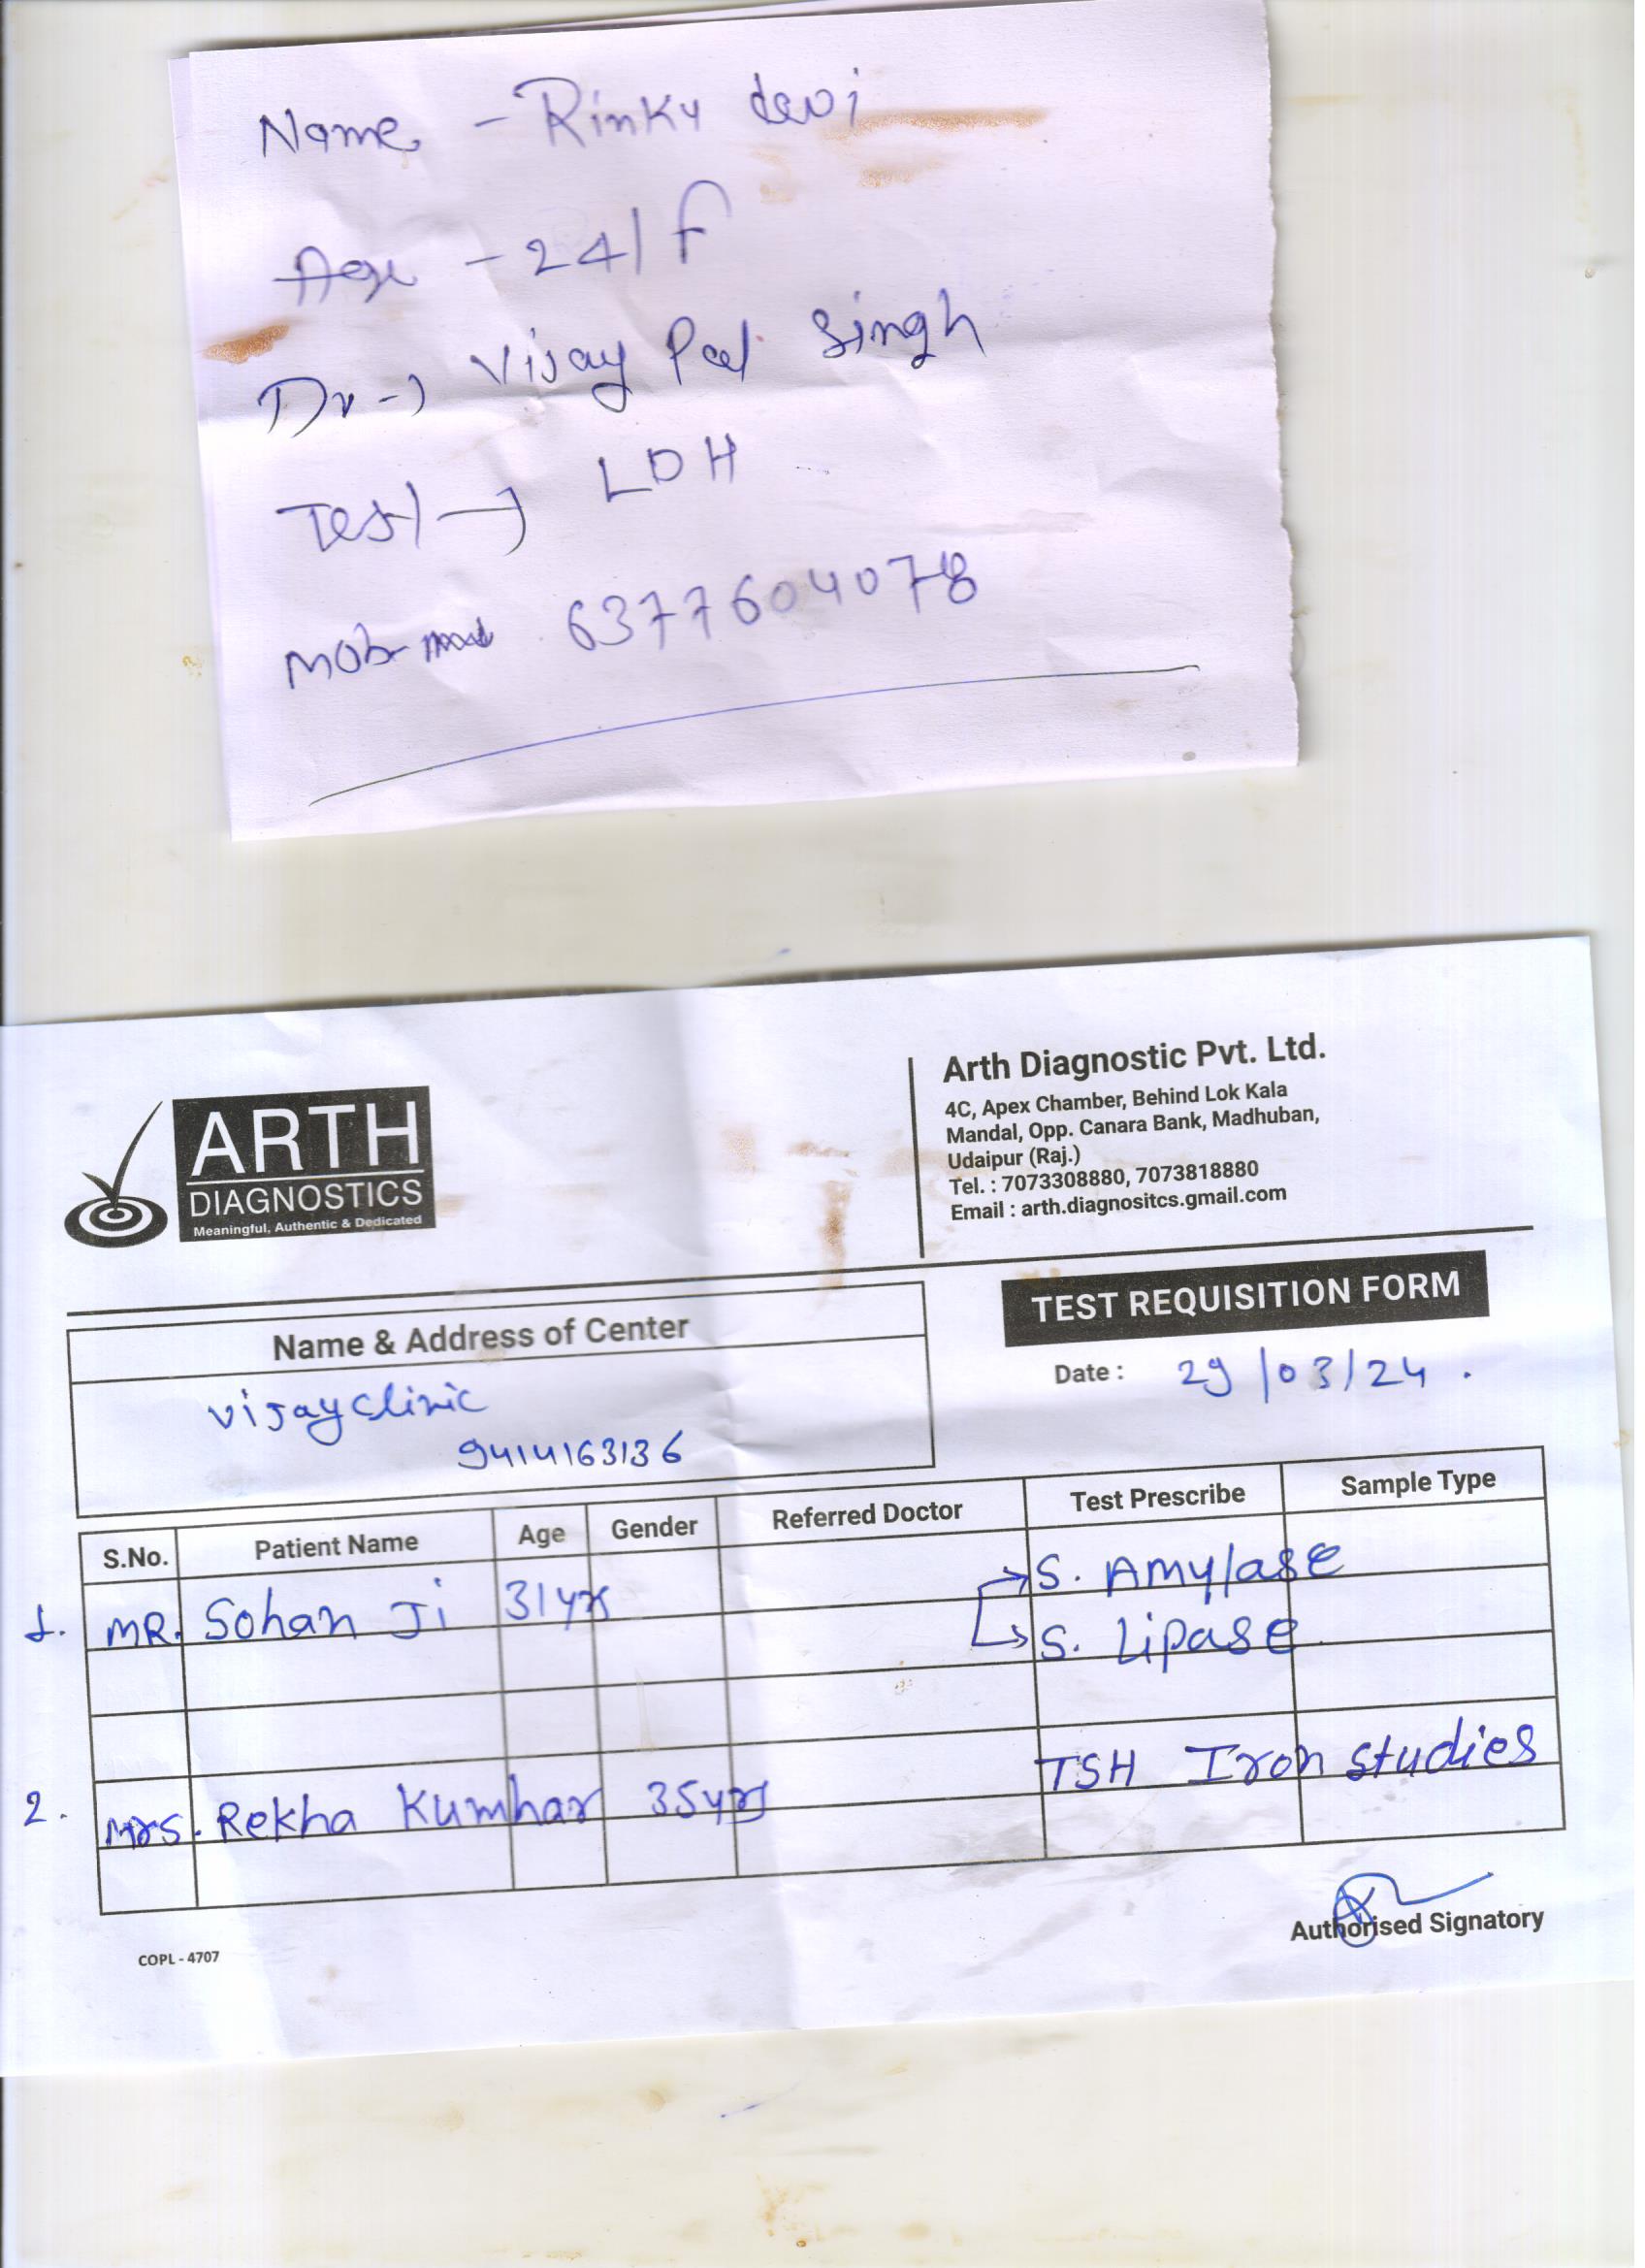 Name - Rinky devi
Age - 24/F
Dr -> Vijay Pal Singh
Test -> LDH
Mob 6377604078
ARTH
DIAGNOSTICS
Meaningful, Authentic & Dedicated
Arth Diagnostic Pvt. Ltd.
4C, Apex Chamber, Behind Lok Kala
Mandal, Opp. Canara Bank, Madhuban,
Udaipur (Raj.)
Tel. : 7073308880, 7073818880
Email : arth.diagnositcs.gmail.com
TEST REQUISITION FORM
Name & Address of Center
Date : 29/03/24.
Vijay clinic
9414163136
S.No. Patient Name Age Gender Referred Doctor Test Prescribe Sample Type
1. MR. Sohan Ji 31yrs S. Amylase
S. Lipase
2. Mrs. Rekha Kumhar 35yrs TSH Iron studies
Authorised Signatory
COPL - 4707